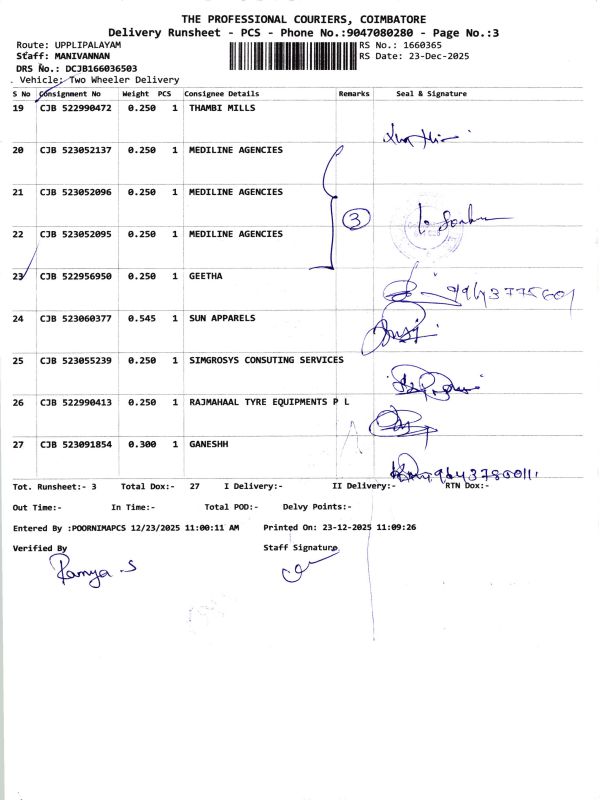 THE PROFESSIONAL COURIERS, COIMBATORE
Delivery Runsheet - PCS - Phone No.:9047080280 - Page No.:3
Route: UPPLIPALAYAM RS No.: 1660365
Staff: MANIVANNAN RS Date: 23-Dec-2025
DRS No.: DCJB166036503
Vehicle: Two Wheeler Delivery
S No Consignment No Weight PCS Consignee Details Remarks Seal & Signature
19 CJB 522990472 0.250 1 THAMBI MILLS
20 CJB 523052137 0.250 1 MEDILINE AGENCIES
21 CJB 523052096 0.250 1 MEDILINE AGENCIES
3
22 CJB 523052095 0.250 1 MEDILINE AGENCIES
23 CJB 522956950 0.250 1 GEETHA
24 CJB 523060377 0.545 1 SUN APPARELS
25 CJB 523055239 0.250 1 SIMGROSYS CONSUTING SERVICES
26 CJB 522990413 0.250 1 RAJMAHAAL TYRE EQUIPMENTS P L
27 CJB 523091854 0.300 1 GANESHH
Tot. Runsheet:- 3 Total Dox:- 27 I Delivery:- II Delivery:- RTN Dox:-
Out Time:- In Time:- Total POD:- Delvy Points:-
Entered By :POORNIMAPCS 12/23/2025 11:00:11 AM Printed On: 23-12-2025 11:09:26
Verified By Staff Signature
Ramya .S